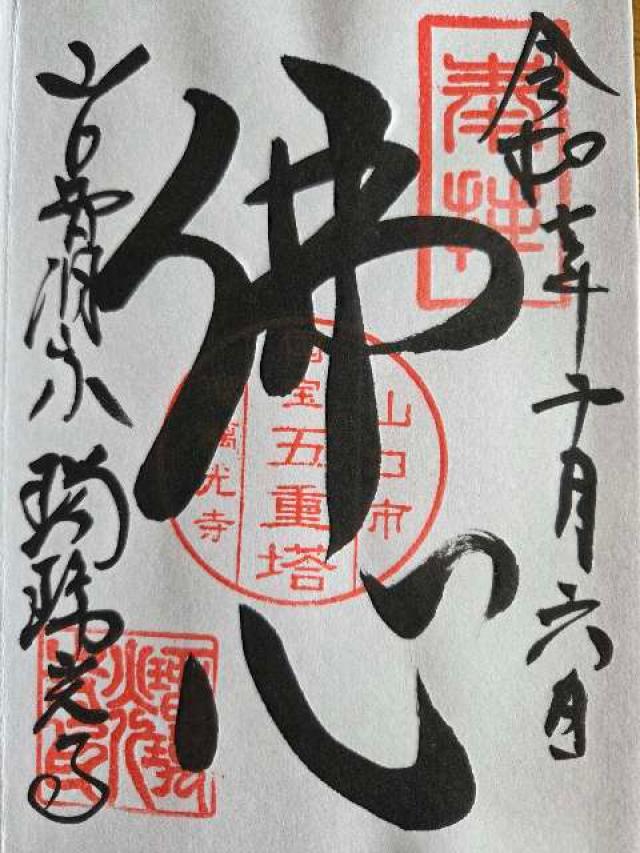 奉拝
令和七年十月六日
佛心
山口市
国宝五重塔
瑠璃光寺
山口曹洞宗 瑠璃光寺